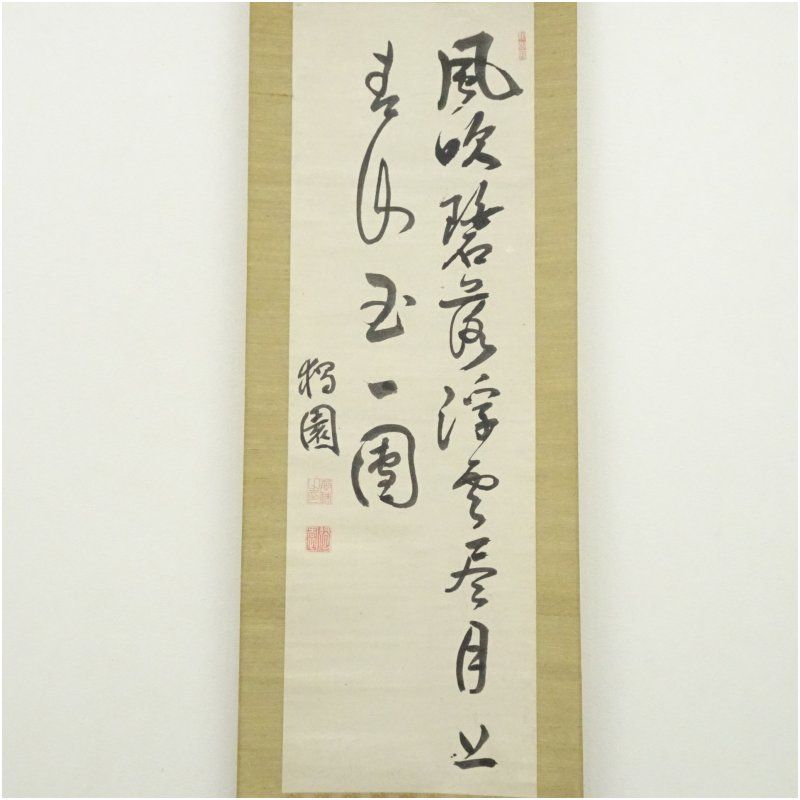 風吹碧落浮雲尽月上
青山玉一團
獨園